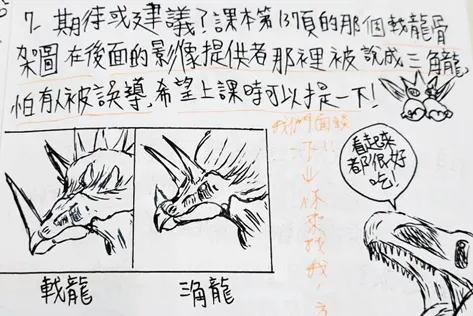 7. 期待或建議?課本第137頁的那個戟龍骨
架圖在後面的影像提供者那裡被說成三角龍,
怕有人被誤導,希望上課時可以提一下!
看起來
都很好
吃!
戟龍
三角龍